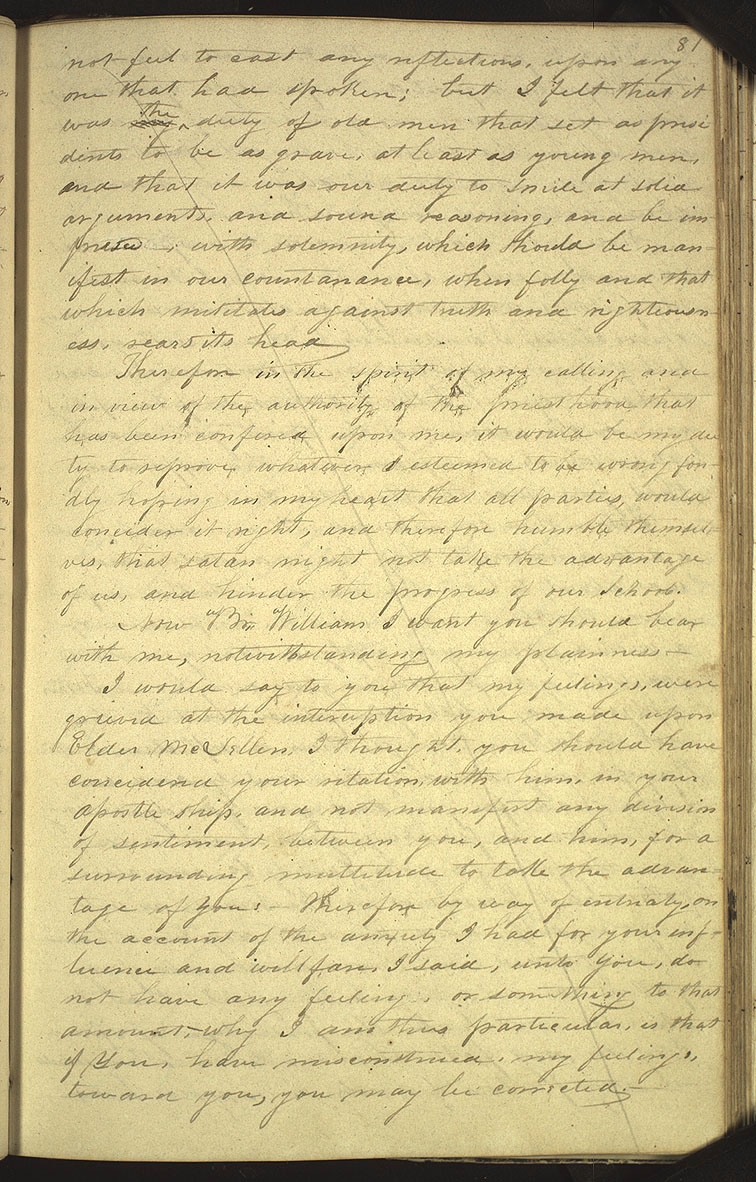 81
not feel to cast any reflections, upon any
one that had spoken; but I felt that it
was my the duty of old men that set as presi
dents to be as grave, at least as young men,
and that it was our duty to smile at solid
arguments, and sound reasoning, and be im
presed, with solemnity, which should be man-
ifest in our countanance, when folly and that
which militates against truth and righteousn-
ess, rears its head
Therefore in the spirit of my calling and
in view of the authority of the priesthood that
has been confered upon me, it would be my du
ty to reprove whatever I esteemed to be wrong fon-
dly hoping in my heart that all parties, would
concider it right, and therefore humble themsel-
ves, that satan might not take the advantage
of us, and hinder the progress of our School.
Now Br. William I want you should bear
with me, notwithstanding my plainness—
I would say to you that my feelings, were
grieved at the interuption you made upon
Elder McLellen, I thought, you should have
concidered your relation, with him, in your
Apostle ship, and not manifest any division
of sentiment, between you, and him, for a
surrounding multitude to take the advan-
tage of you:— Therefore by way of entreaty, on
the account of the anxiety I had for your inf-
luence and wellfare, I said, unto you, do
not have any feeling, or something to that
amount, why I am thus particular, is that
if You, have misconstrued, my feelings,
toward you, you may be corrected.—